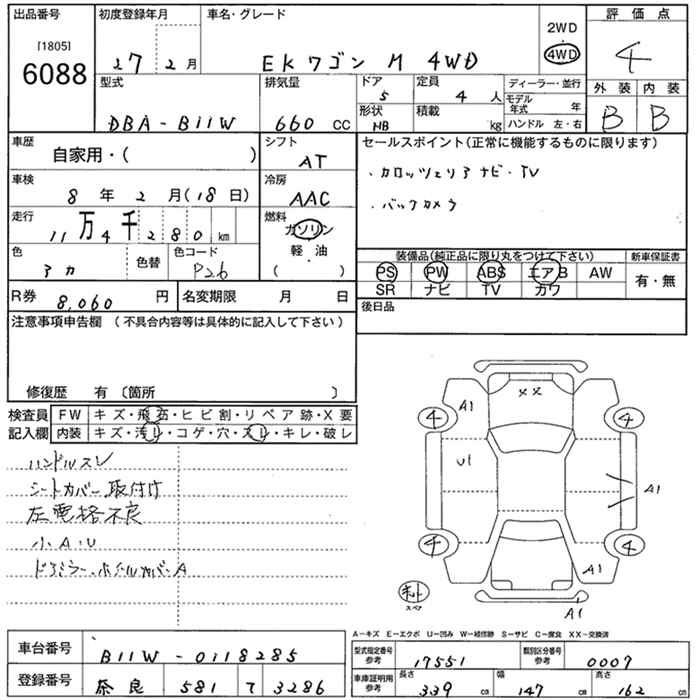 出品番号
[1805]
6088
初度登録年月
27 2月
車名・グレード
EKワゴン M 4WD
2WD
4WD
評価点
4
外装 内装
B B
型式
DBA-B11W
排気量
660 CC
ドア
5
定員
4 人
形状
HB
積載
kg
ディーラー・並行
モデル年式 年
ハンドル 左・右
車歴
自家用・( )
シフト
AT
車検
8 年 2 月(18日)
冷房
AAC
走行
11万4千280 km
燃料
ガソリン
軽・油
( ・ )
色
アカ
色替
色コード
P26
R券 8,060 円
名変期限 月 日
セールスポイント(正常に機能するものに限ります)
・カロッツェリア ナビ・TV
・バックカメラ
装備品(純正品に限り丸をつけて下さい)
PS PW ABS エアB AW
SR ナビ TV カワ
新車保証書
有・無
後日品
注意事項申告欄(不具合内容等は具体的に記入して下さい)
修復歴 有〔箇所 〕
検査員記入欄
FW キズ・飛石・ヒビ割・リペア跡・X要
内装 キズ・汚レ・コゲ・穴・スレ・キレ・破レ
ハンドルスレ
シートカバー取付け
左電格不良
小A・U
ドアミラー、ホイールカバーA
A1
XX
4
4
U1
A1
4
4
A1
A1
スペア
A-キズ E-エクボ U-凹み W-補修跡 S-サビ C-腐食 XX-交換済
車台番号
B11W-0118285
登録番号
奈良 581 て 3286
型式指定番号
参考
17551
類別区分番号
参考
0007
車庫証明用
参考
長さ
339 cm
幅
147 cm
高さ
162 cm